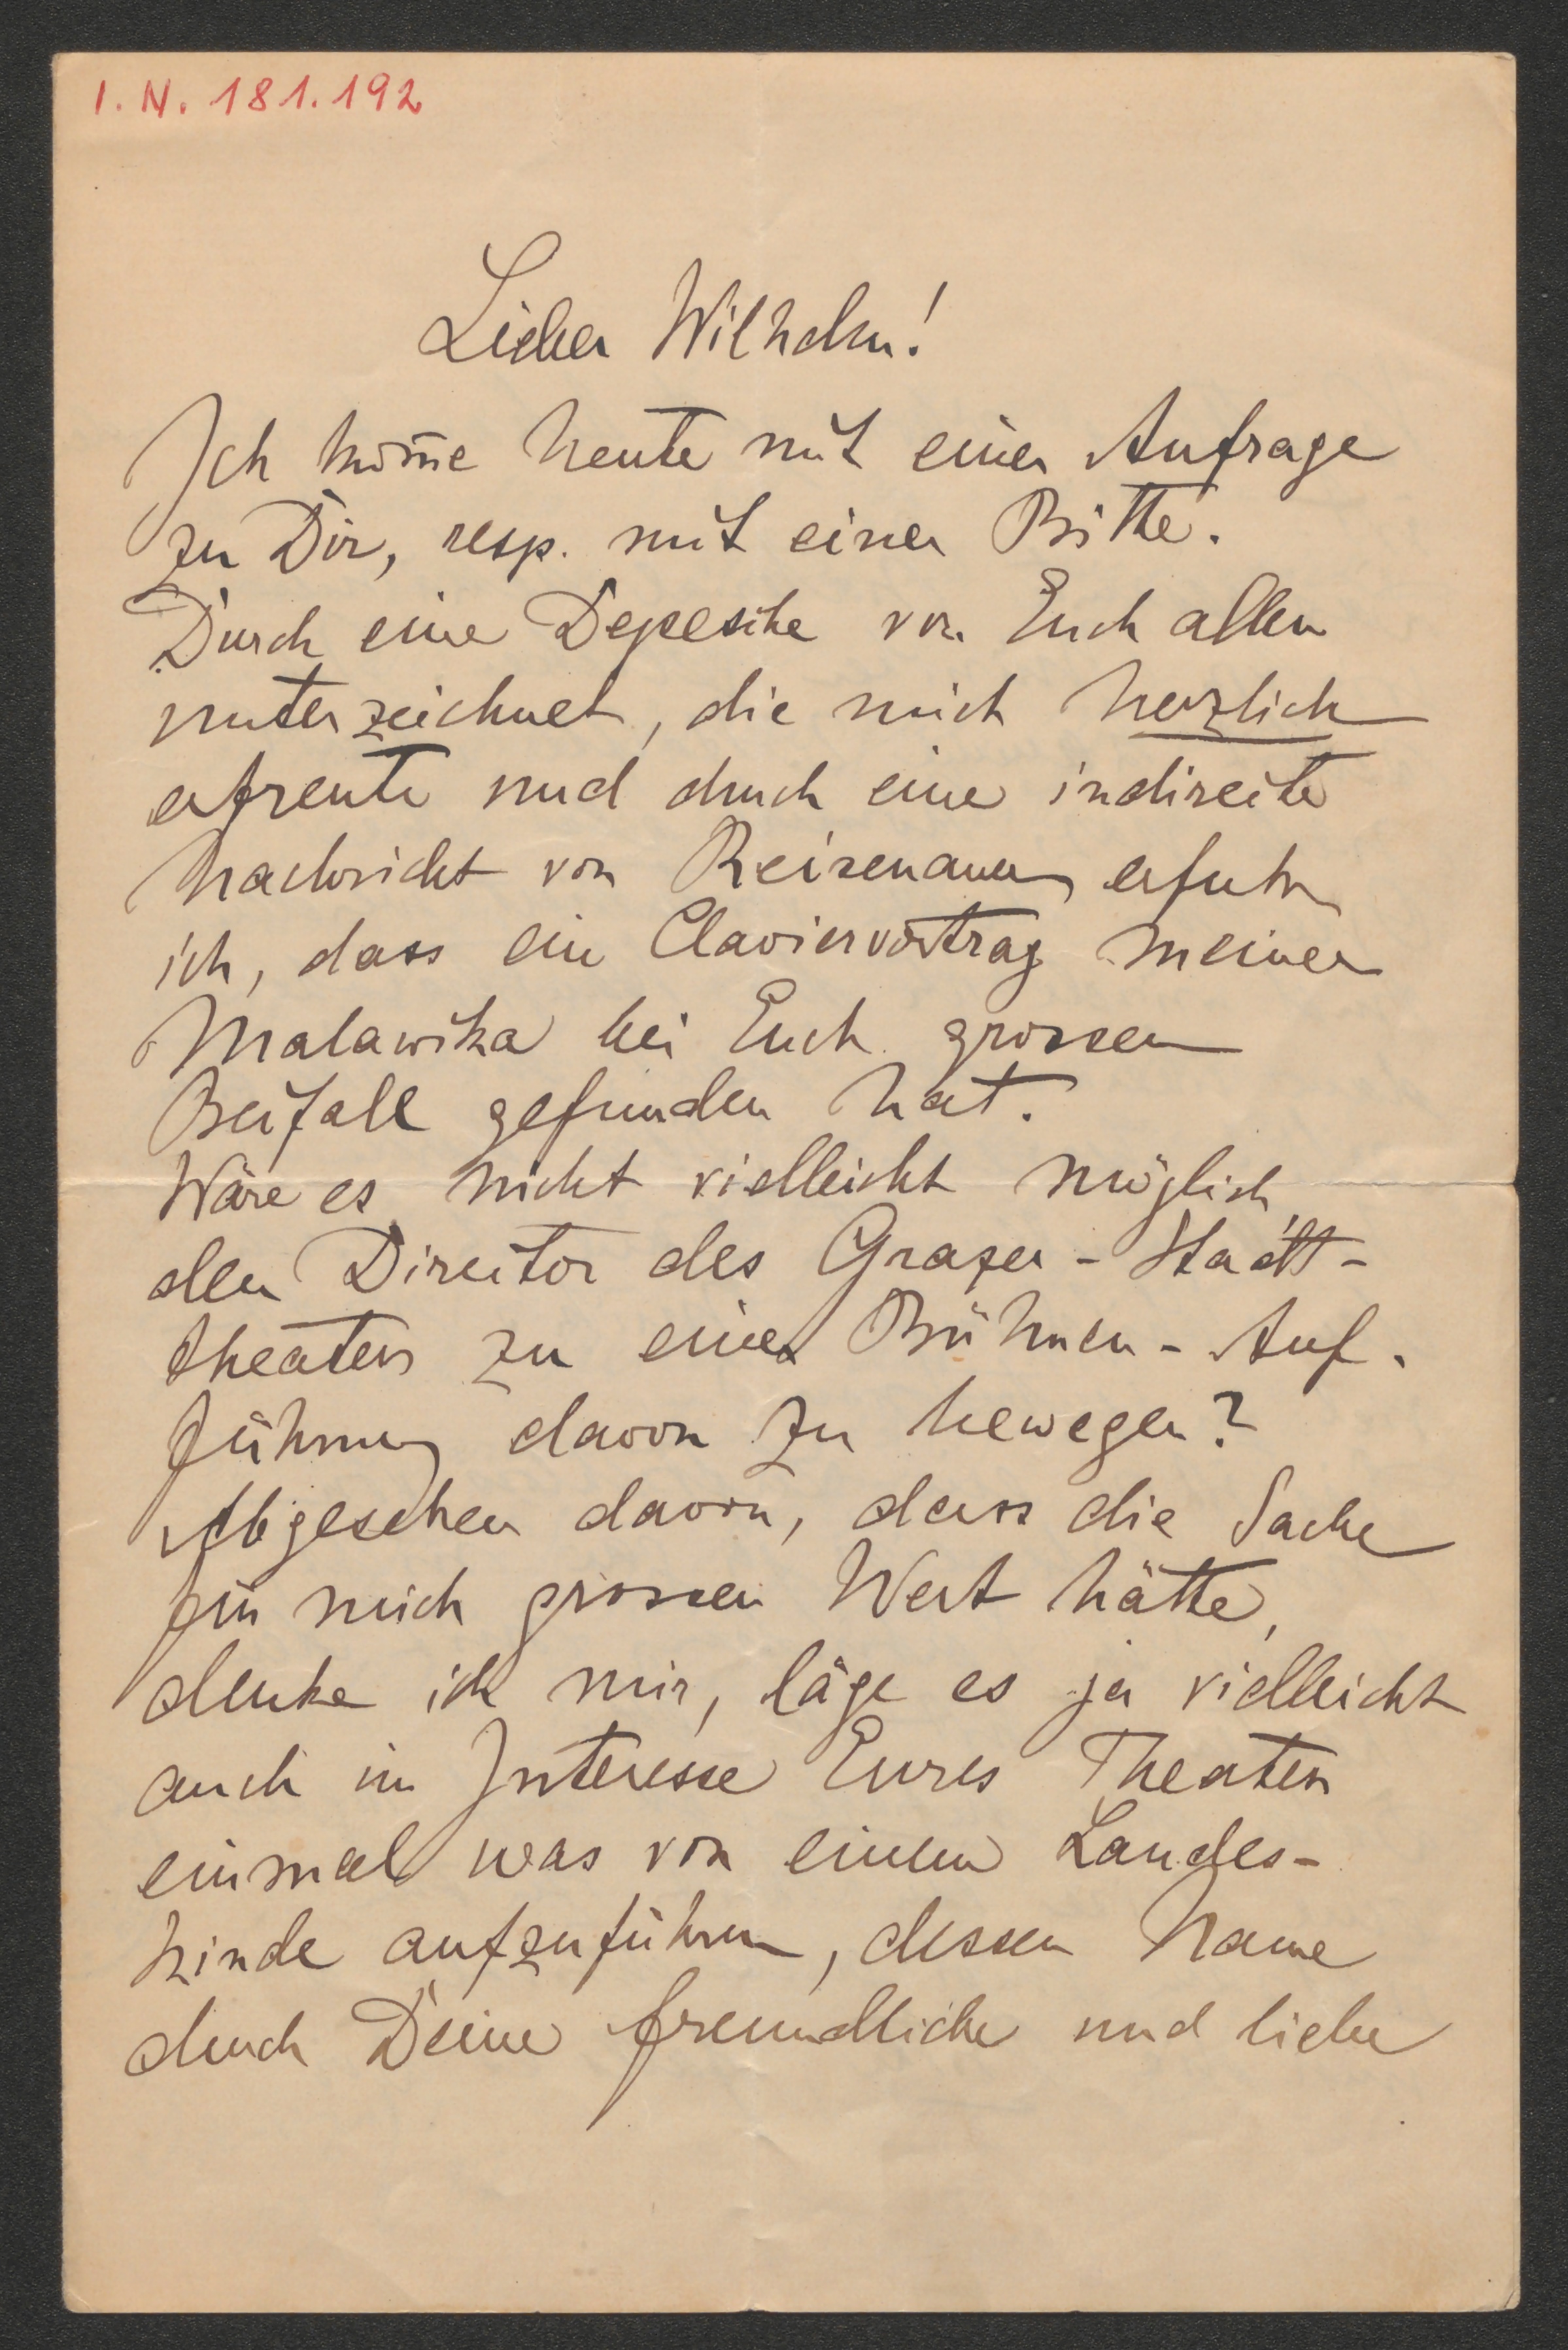 I. N. 181.192
Lieber Wilhelm!
Ich kom̄e heute mit einer Anfrage
zu Dir, resp. mit einer Bitte.
Durch eine Depesche von Euch allen
unterzeichnet, die mich herzlich
erfreute und durch eine indirecte
Nachricht von Reisenauer erfuhr
ich, dass ein Claviervortrag meiner
Malawika bei Euch grossen
Beifall gefunden hat.
Wäre es nicht vielleicht möglich,
den Director des Grazer-Stadt-
theaters zu einer Bühnen-Auf-
führung davon zu bewegen?
Abgesehen davon, dass die Sache
für mich grossen Wert hätte,
denke ich mir, läge es ja vielleicht
auch im Interesse Eures Theaters
einmal was von einem Landes-
kinde aufzuführen, dessen Name
durch Deine freundliche und liebe